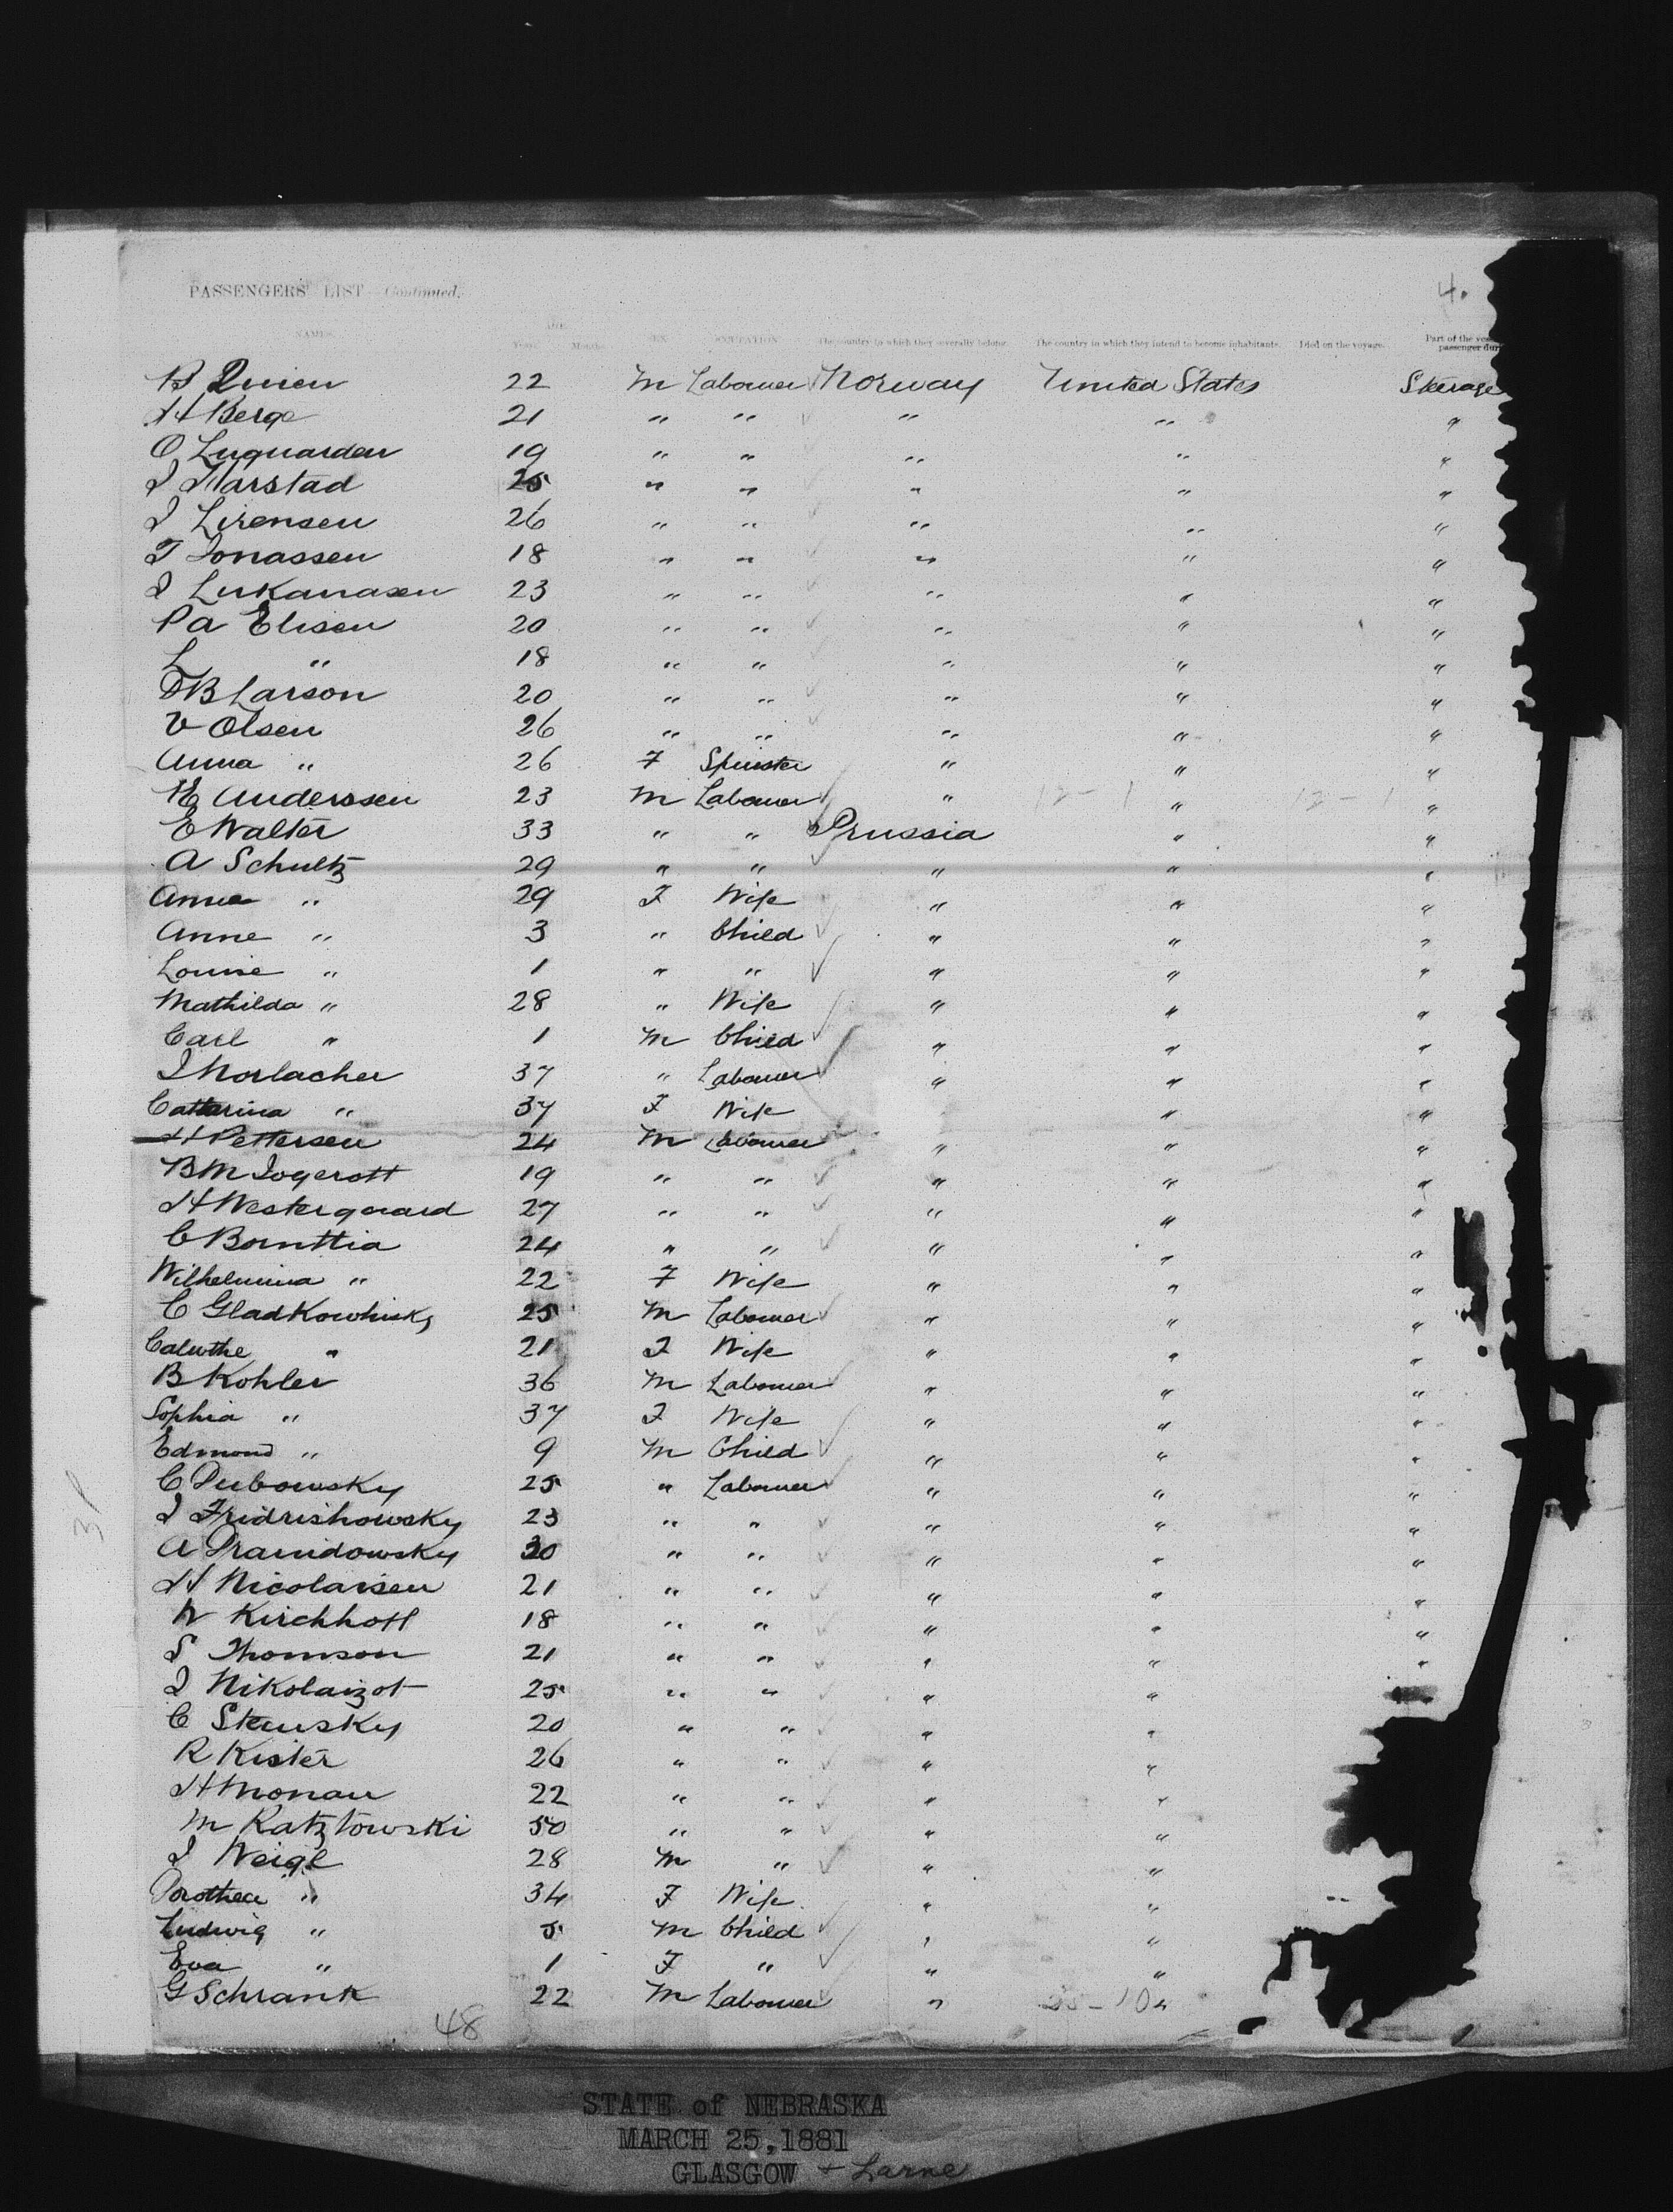 PASSENGERS' LIST Continued. 4.
NAMES AGE Years Months SEX OCCUPATION The country to which they severally belong. The country in which they intend to become inhabitants. Died on the voyage. Part of the passenger
22 M Labourer Norway United States Steerage
H Berge 21 " " " " "
O Luguarden 19 " " " " "
J Harstad 25 " " " " "
J Lirensen 26 " " " " "
T Jonassen 18 " " " " "
J Lukanasen 23 " " " " "
P A Elisen 20 " " " " "
L " 18 " " " " "
B Larson 20 " " " " "
V Olsen 26 " " " " "
Anna " 26 F Spinster " " "
E Anderssen 23 M Labourer " 12-1 " 12-1 "
E Walter 33 " " Prussia " "
A Schultz 29 " " " " "
Anna " 29 F Wife " " "
Anne " 3 " Child " " "
Louise " 1 " " " " "
Mathilda " 28 " Wife " " "
Carl " 1 M Child " " "
J Morlacher 37 " Labourer " " "
Cattarina " 37 F Wife " "
H Pettersen 24 M Labourer " " "
B M Jogerott 19 " " " " "
H Westergaard 27 " " " " "
C Bornttia 24 " " " " "
Wilhelmina " 22 F Wife " " "
C Gladkowhisky 25 M Labourer " " "
Caluthe " 21 F Wife " " "
B Kohler 36 M Labourer " " "
Sophia " 37 F Wife " " "
Edmond " 9 M Child " " "
C Dubowsky 25 " Labourer " " "
J Fridrishowsky 23 " " " " "
A 30 " " " " "
H Nicolaisen 21 " " " " "
W Kirchhoff 18 " " " " "
S Thomson 21 " " " " "
J Nikolaizot 25 " " " "
C Stensky 20 " " " "
R Kister 26 " " " "
H Monau 22 " " " "
M Katztowski 50 " " " "
J Weigl 28 M " " "
Dorothea " 34 F Wife " "
Ludwig " 5 M Child " "
Eva " 1 F " " "
G Schrank 22 M Labourer " "
48
31
STATE of NEBRASKA
MARCH 25, 1881
GLASGOW + Larne